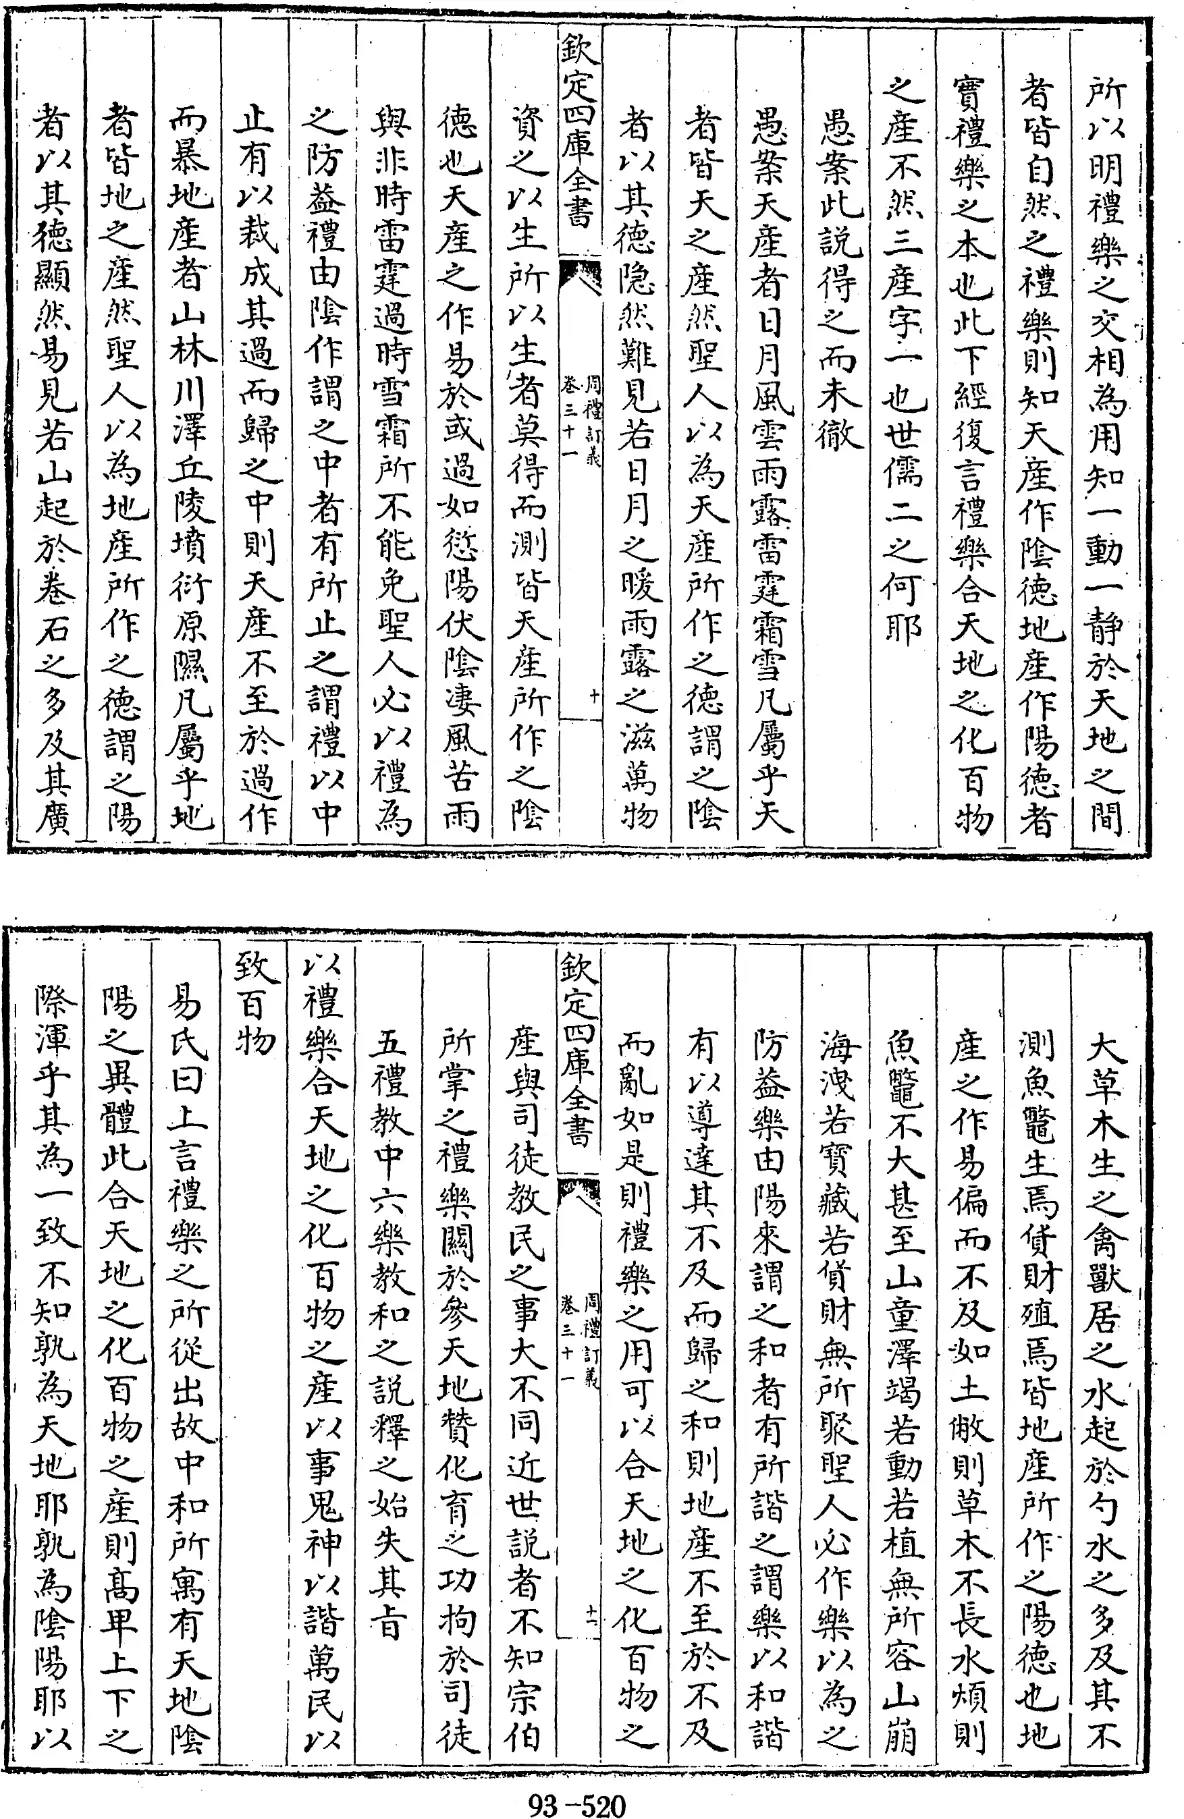 所以明禮樂之交相為用知一動一靜於天地之間
者皆自然之禮樂則知天產作陰德地產作陽德者
實禮樂之本也此下經復言禮樂合天地之化百物
之產不然三產字一也世儒二之何耶
愚案此説得之而未徹
愚案天產者日月風雲雨露雷霆霜雪凡屬乎天
者皆天之產然聖人以為天產所作之德謂之陰
者以其德隐然難見若日月之暖雨露之滋萬物
欽定四庫全書
周禮訂義
卷三十一
十
資之以生所以生者莫得而測皆天產所作之陰
德也天產之作易於或過如愆陽伏陰凄風苦雨
與非時雷霆過時雪霜所不能免聖人必以禮為
之防葢禮由陰作謂之中者有所止之謂禮以中
止有以裁成其過而歸之中則天產不至於過作
而暴地產者山林川澤丘陵墳衍原隰凡屬乎地
者皆地之產然聖人以為地產所作之德謂之陽
者以其德顯然易見若山起於卷石之多及其廣
大草木生之禽獸居之水起於勺水之多及其不
測魚鼈生焉貨財殖焉皆地產所作之陽德也地
產之作易偏而不及如土敝則草木不長水煩則
魚鼈不大甚至山童澤竭若動若植無所容山崩
海洩若寶藏若貨財無所聚聖人必作樂以為之
防葢樂由陽來謂之和者有所諧之謂樂以和諧
有以導達其不及而歸之和則地產不至於不及
而亂如是則禮樂之用可以合天地之化百物之
欽定四庫全書
周禮訂義
卷三十一
十一
產與司徒教民之事大不同近世説者不知宗伯
所掌之禮樂關於參天地贊化育之功拘於司徒
五禮教中六樂教和之説釋之始失其㫖
以禮樂合天地之化百物之產以事鬼神以諧萬民以
致百物
易氏曰上言禮樂之所從出故中和所寓有天地陰
陽之異體此合天地之化百物之產則髙卑上下之
際渾乎其為一致不知孰為天地耶孰為陰陽耶以
93-520